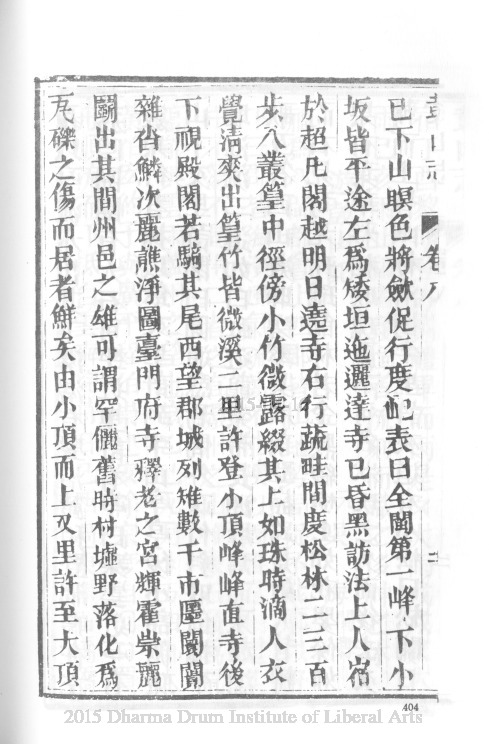 鼓山志 卷八
已下山暝色將斂促行度屴表曰全閩第一峰下小
坂皆平途左爲矮垣迤邐達寺已昏黑訪法上人宿
於超凡閣越明日遶寺右行蔬畦間度松林二三百
步入叢篁中徑傍小竹微露綴其上如珠時滴人衣
覺清爽出篁竹皆微溪二里許登小頂峰峰直寺後
下視殿閣若騎其尾西望郡城列雉數千市廛闤闠
雜沓鱗次麗譙淨圖臺門府寺釋老之宮輝霍崇麗
鬬出其間州邑之雄可謂罕儷舊時村墟野落化爲
瓦礫之傷而居者鮮矣由小頂而上又里許至大頂
404
2015 Dharma Drum Institute of Liberal Arts